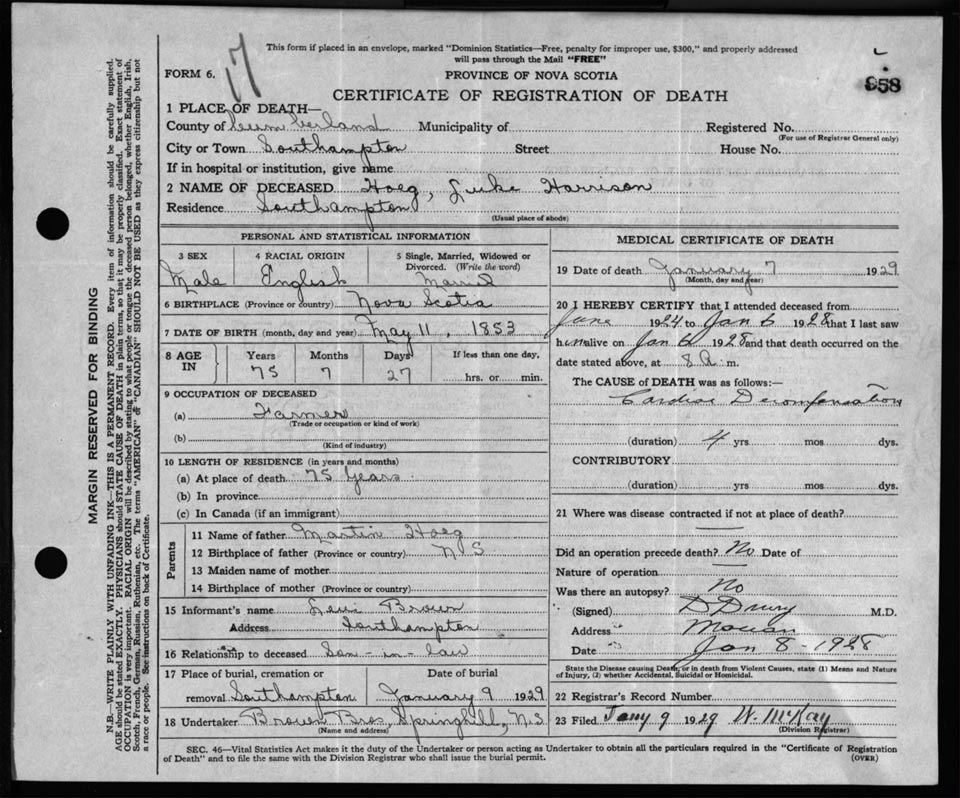 This form if placed in an envelope, marked "Dominion Statistics—Free, penalty for improper use, $300," and properly addressed
will pass through the Mail "FREE"
17
FORM 6.
PROVINCE OF NOVA SCOTIA
CERTIFICATE OF REGISTRATION OF DEATH
958
1 PLACE OF DEATH—
County of Cumberland Municipality of Registered No.
(For use of Registrar General only)
City or Town Southampton Street House No.
If in hospital or institution, give name
2 NAME OF DECEASED Hoeg, Luke Harrison
Residence Southampton
(Usual place of abode)
PERSONAL AND STATISTICAL INFORMATION
3 SEX 4 RACIAL ORIGIN 5 Single, Married, Widowed or
Divorced. (Write the word)
Male English Married
6 BIRTHPLACE (Province or country) Nova Scotia
7 DATE OF BIRTH (month, day and year) May 11, 1853
8 AGE IN Years Months Days If less than one day,
75 7 27 hrs. or min.
9 OCCUPATION OF DECEASED
(a) Farmer
(Trade or occupation or kind of work)
(b)
(Kind of industry)
10 LENGTH OF RESIDENCE (in years and months)
(a) At place of death 75 Years
(b) In province
(c) In Canada (if an immigrant)
Parents
11 Name of father Martin Hoeg
12 Birthplace of father (Province or country) N S
13 Maiden name of mother
14 Birthplace of mother (Province or country)
15 Informant's name Levi Brown
Address Southampton
16 Relationship to deceased Son-in-law
17 Place of burial, cremation or Date of burial
removal Southampton January 9 1929
18 Undertaker Brown Bros, Springhill, N.S.
(Name and address)
MEDICAL CERTIFICATE OF DEATH
19 Date of death January 7 1929
(Month, day and year)
20 I HEREBY CERTIFY that I attended deceased from
June 1924 to Jan 6 1928 that I last saw
him alive on Jan 6 1928 and that death occurred on the
date stated above, at 8 A. m.
The CAUSE of DEATH was as follows:—
Cardiac Decompensation
(duration) 4 yrs. mos dys.
CONTRIBUTORY
(duration) yrs. mos. dys.
21 Where was disease contracted if not at place of death?
Did an operation precede death? No Date of
Nature of operation
Was there an autopsy? No
(Signed) D Drury M.D.
Address
Date Jan 8-1928
State the Disease causing Death, or in death from Violent Causes, state (1) Means and Nature
of Injury, (2) whether Accidental, Suicidal or Homicidal.
22 Registrar's Record Number
23 Filed Jany 9 1929 W. McKay
(Division Registrar)
SEC. 46—Vital Statistics Act makes it the duty of the Undertaker or person acting as Undertaker to obtain all the particulars required in the "Certificate of Registration
of Death" and to file the same with the Division Registrar who shall issue the burial permit.
(OVER)
MARGIN RESERVED FOR BINDING
N.B.—WRITE PLAINLY WITH UNFADING INK—THIS IS A PERMANENT RECORD. Every item of information should be carefully supplied.
AGE should be stated EXACTLY. PHYSICIANS should STATE CAUSE OF DEATH in plain terms, so that it may be properly classified. Exact statement of
OCCUPATION is very important. RACIAL ORIGIN will be described by stating to what people or tongue the deceased person belonged, whether English, Irish,
Scotch, French, German, Russian, Ruthenian, etc. The terms "AMERICAN" or "CANADIAN" SHOULD NOT BE USED as they express citizenship but not
a race or people. See instructions on back of Certificate.